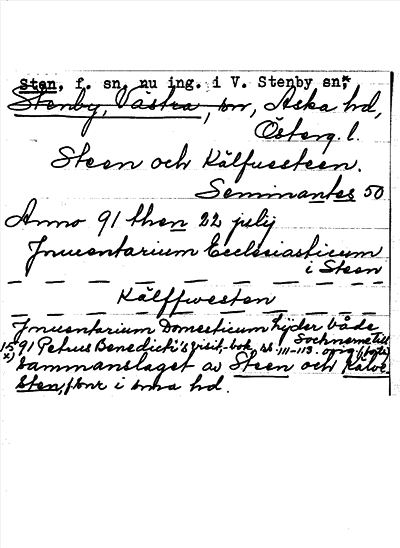 Sten, f. sn, nu ing. i V. Stenby sn,*
Stenby, Västra, sn, Aska hd,
Österg. l.
Steen och Kälfuesteen.
Seminantes 50
Anno 91 then 22 julij
Inuentarium Ecclesiasticum
i Steen
Kälffwesten
Inuentarium Domesticum hÿder både
Sochnerne till
1591 Petrus Benedicti's visit.-bok, ss. 111-113. orig. (foto)
x) Sammanslaget av Steen och Kälve-
sten, f.snr i sma hd.